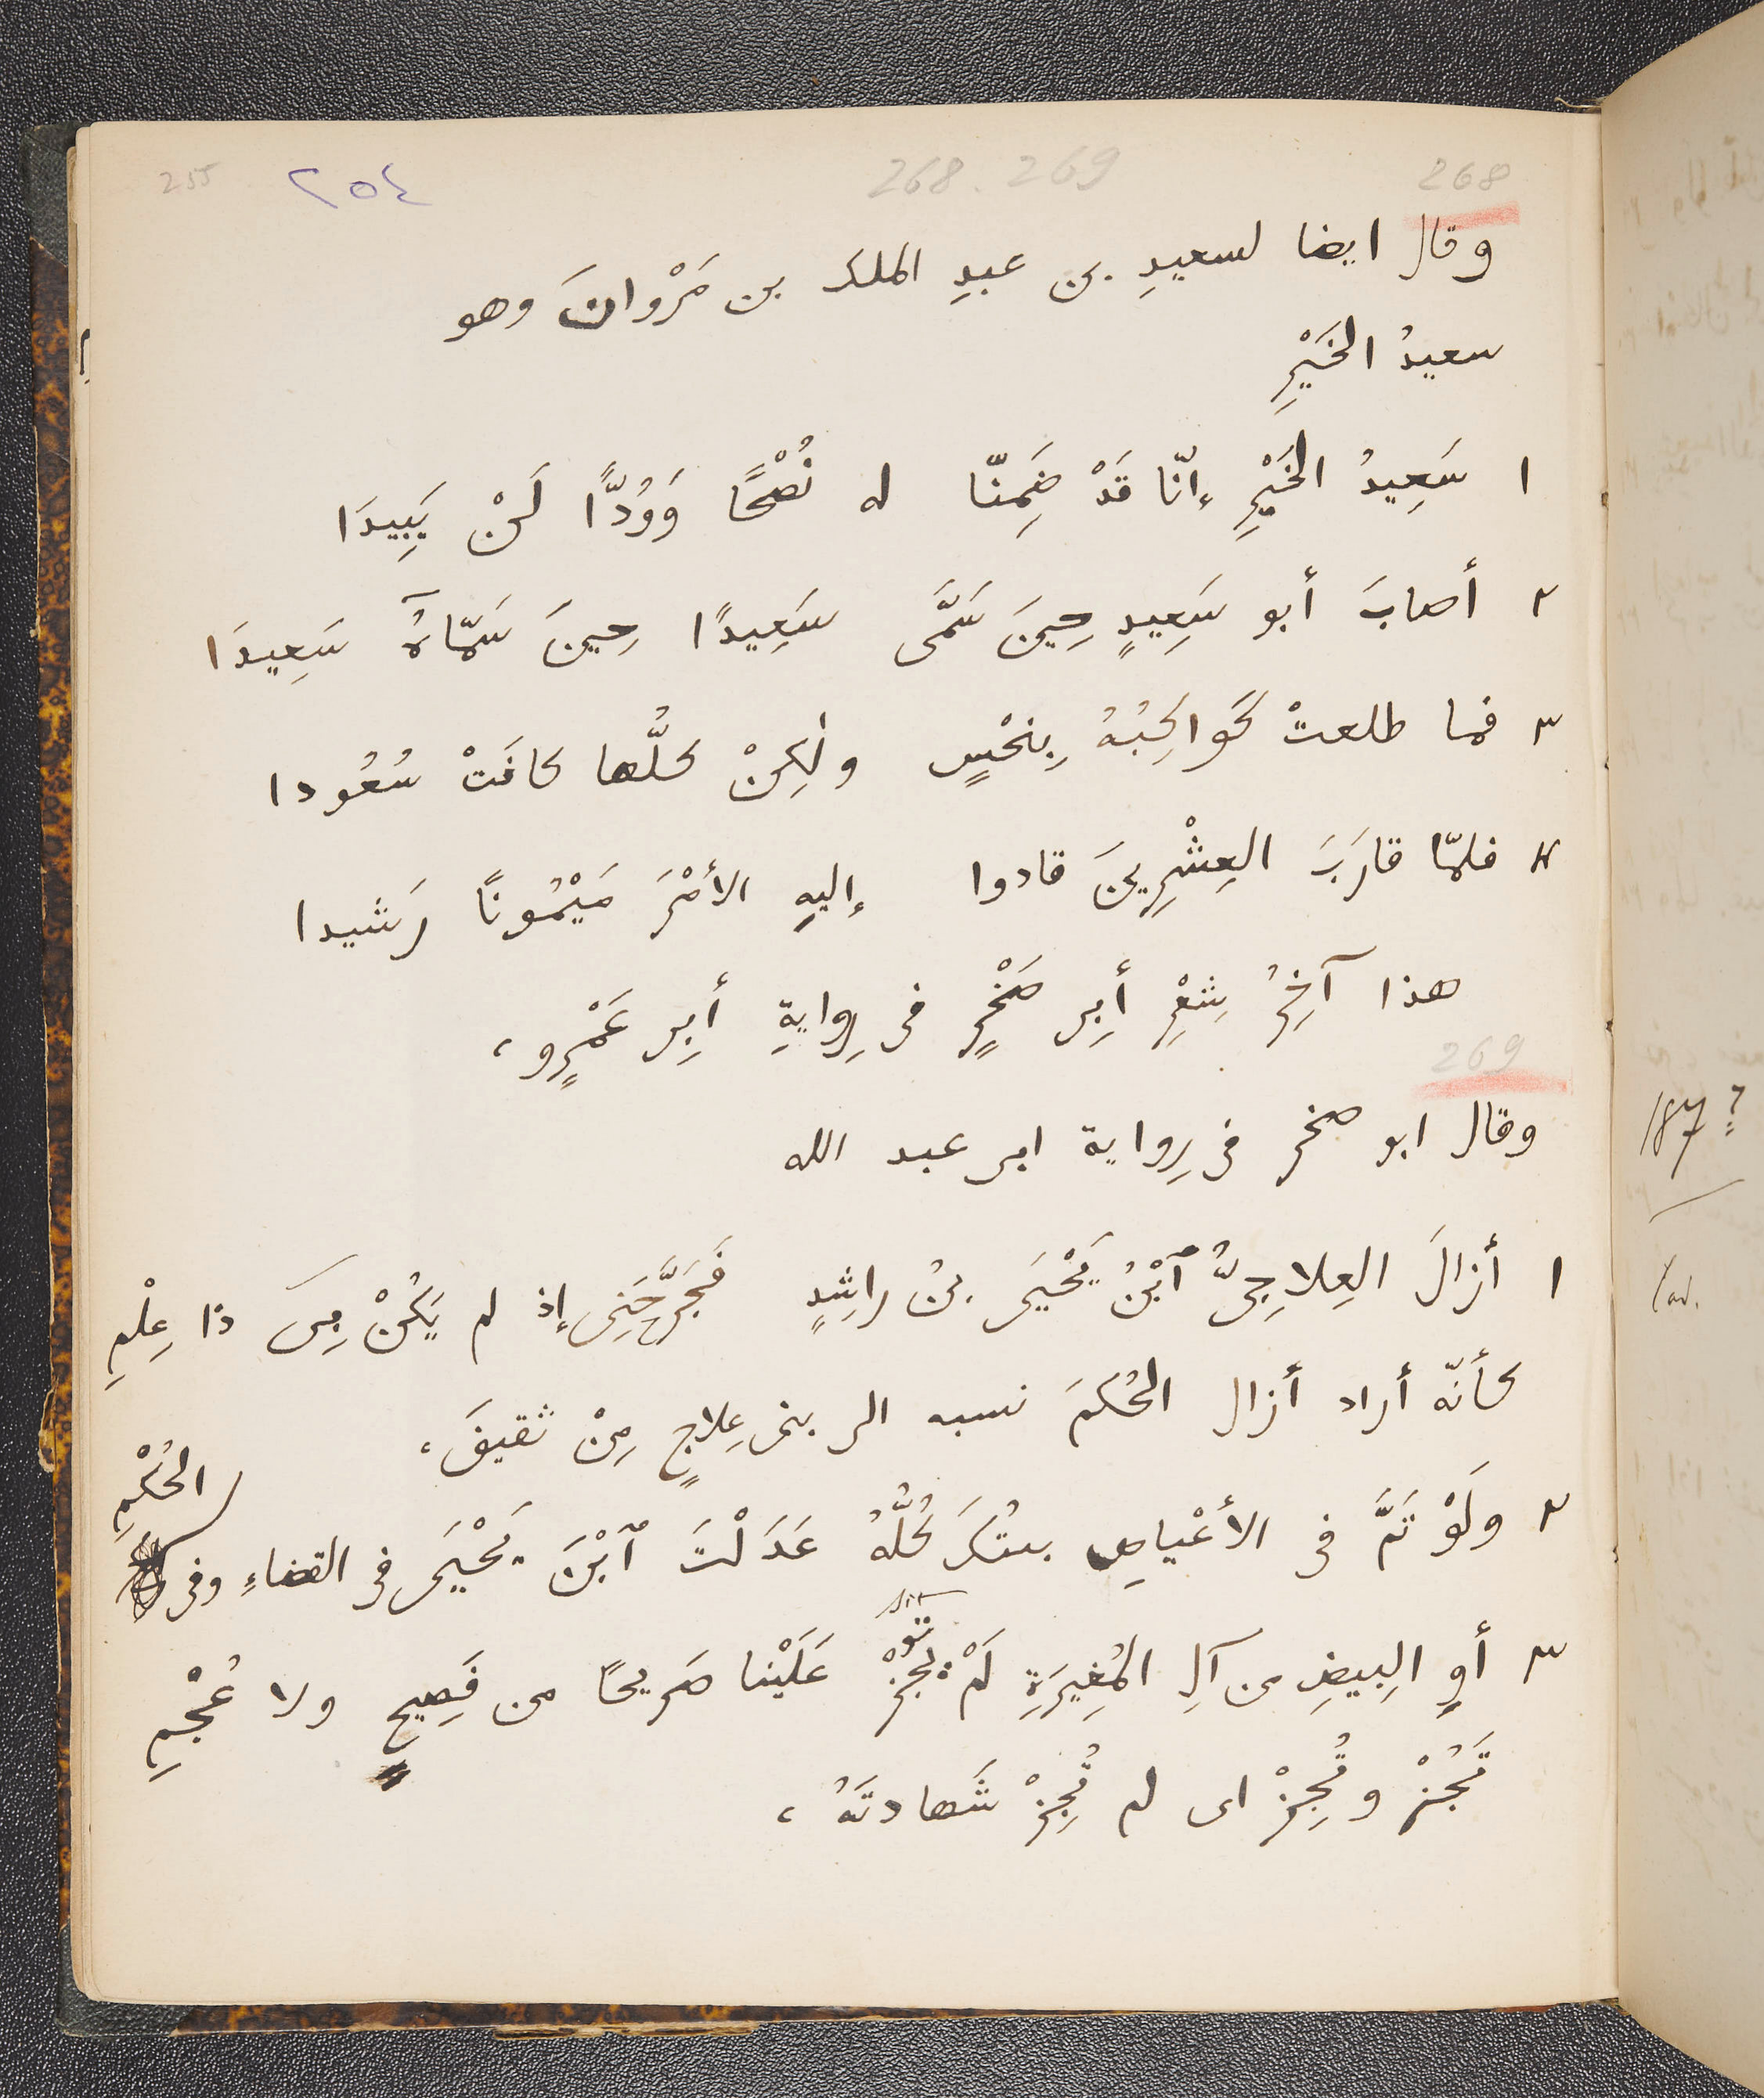 255 ٢٥٤ 268. 269 268
وقال ايضا لسعيدِ بن عبدِ الملك بن مَرْوانَ وهو
سعيدُ الخَيْرِ
١ سَعِيدُ الخَيْرِ إنّا قَدْ ضَمِنّا له نُصْحًا وَوُدًّا لَنْ يَبِيدَا
٢ أصابَ أبو سَعِيدٍ حِينَ سَمَّى سَعِيدًا حِينَ سَمّاهُ سَعِيدَا
٣ فما طلعتْ كَواكِبُهُ بِنحْسٍ ولٰكِنْ كلُّها كانَتْ سُعُودا
٤ فلمّا قارَبَ العِشْرِينَ قادوا إليهِ الأمْرَ مَيْمُونًا رَشيدا
هذا آخِرُ شِعْرِ أَبِى صَخْرٍ فى رِوايةِ أَبِى عَمْرٍو،
269
وقال ابو صخر فى رِواية ابى عبد الله
187 ?
١ أزالَ العِلاجِىُّ ٱبْنُ يَحْيَى بنُ راشِدٍ فَجَرَّحَنِى إذ لم يَكُنْ بِىَ ذا عِلْمِ
كأنّه أراد أزال الحُكمَ نسبه الى بنى عِلاجٍ مِنْ ثقيفَ،
٢ ولَوْ تَمَّ فى الأعْياصِ كُلُّهُ عَدَلْتَ ٱبْنَ يَحْيَى فى القضاءِ وفى الحُكْمِ
٣ أوِ البِيضِ من آلِ المُغِيرَةِ لَمْ تجزْ عَلَيْنا صَريحًا من فَصِيحٍ ولا عُجْمِ
تَجُزْ وتُجِزْ اى لم تُجِزْ شَهادتَهُ،